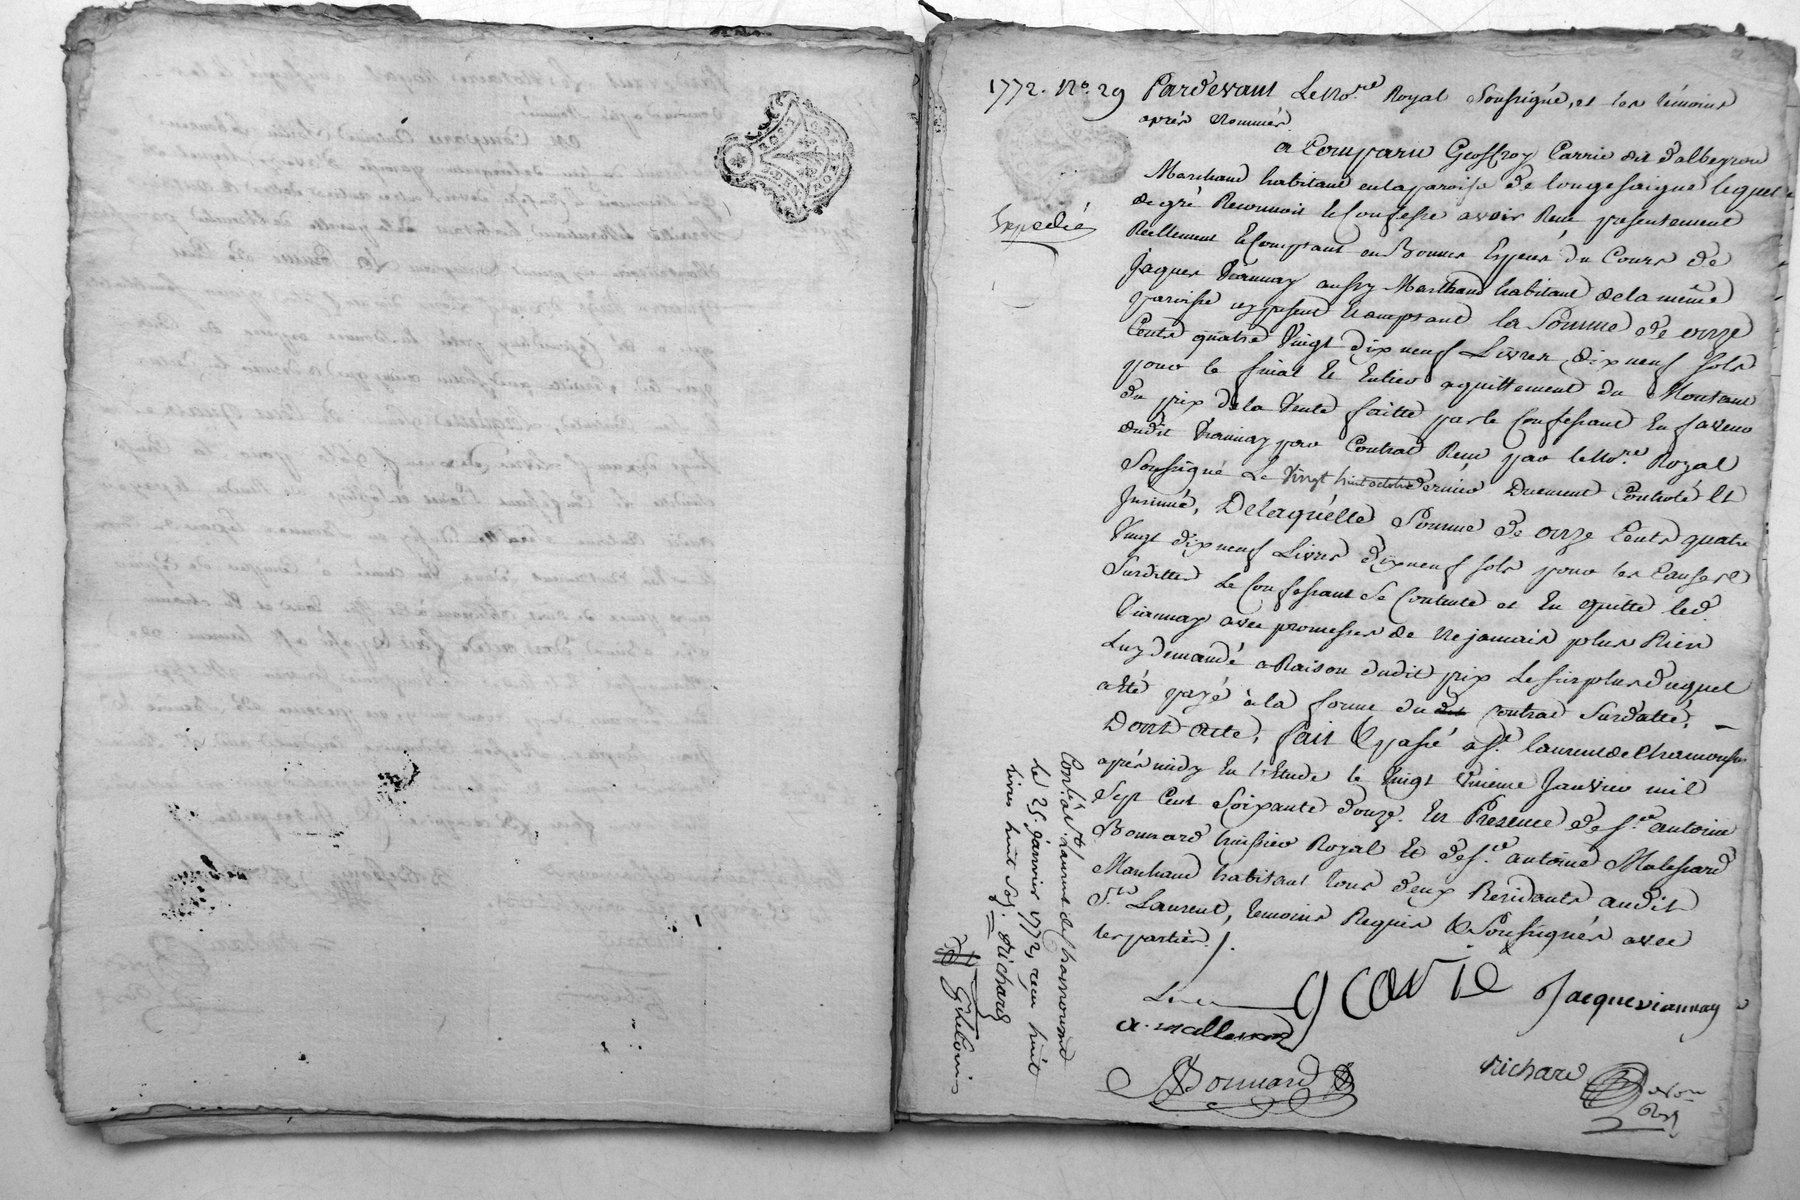 1772. No. 29 Pardevant Le No.re Royal Soussigné, et les témoins
après Nommés.
a Comparu Geoffroy Carrie dit Dalbeyron
Marchand habitant en la paroisse de longesaigne lequel
de gré Reconnoit & Confesse avoir Reçu presentement
Expedié
Réellement & Comptant en Bonnes Espèces du Cours de
Jaques Viannay aussy Marchand habitant de la même
paroisse icy present & comptant la Somme de onze
Cents quatre Vingt dix neuf Livres dix neuf sols
pour le final & Entier aquittement du Montant
du prix de la Vente faitte par le Confessant En faveur
dudit Viannay par Contrat Reçu par le No.re Royal
Soussigné Le Vingt huit octobre dernier Duement Controlé Et
Insinué, De laquelle Somme de onze Cents quatre
Vingt dix neuf Livres dix neuf sols pour les Causes
Surdittes Le Confessant Se Contente et En quitte led.
Viannay avec promesses de Ne jamais plus Rien
Luy demandé a Raison dudit prix Le Surplus duquel
a été payé à la forme du Contrat Surdatté,
Dont acte, fait & passé a St. laurent de Chamousset
après midy En l'Etude le Vingt Unieme Janvier mil
Sept Cent Soixante douze. En Presence de Sr. antoine
Bonnard huissier Royal Et de Sr. antoine Malessard
Marchand habitant tous deux Residants audit
St. Laurent, temoins Requis & Soussignés avec
les parties ./.
g carie Jacque viannay
Bonnard Richard
Laurent de chamousset
le 25 janvier 1772, reçu huit
livres huit sols. Richard